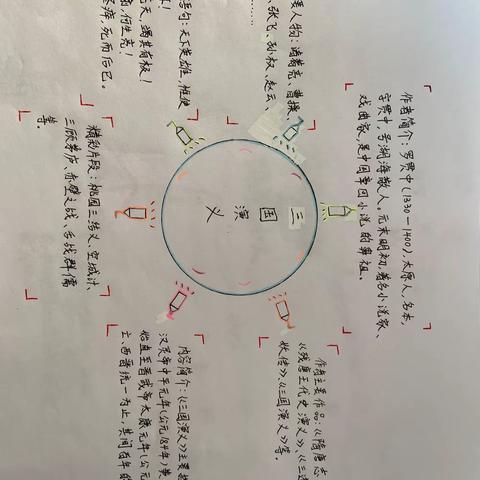 要人物：诸葛亮、曹操、
、张飞、孙权、赵云、
……
作者简介：罗贯中（1330—1400），太原人，名本，
字贯中，号湖海散人。元末明初，著名小说家、
戏曲家，是中国章回小说的鼻祖。
作者主要作品：《隋唐志
《残唐五代史演义》、《三遂
妖传》、《三国演义》等。
三国演义
语句：天下英雄，惟使
天，竭其有极！
何生亮！
瘁，死而后已。
精彩片段：桃园三结义、空城计、
三顾茅庐、赤壁之战、舌战群儒
等。
内容简介：《三国演义》主要描
汉灵帝中平元年（公元184年）黄
始直至晋武帝太康元年（公元
西晋统一为止，其间百年的